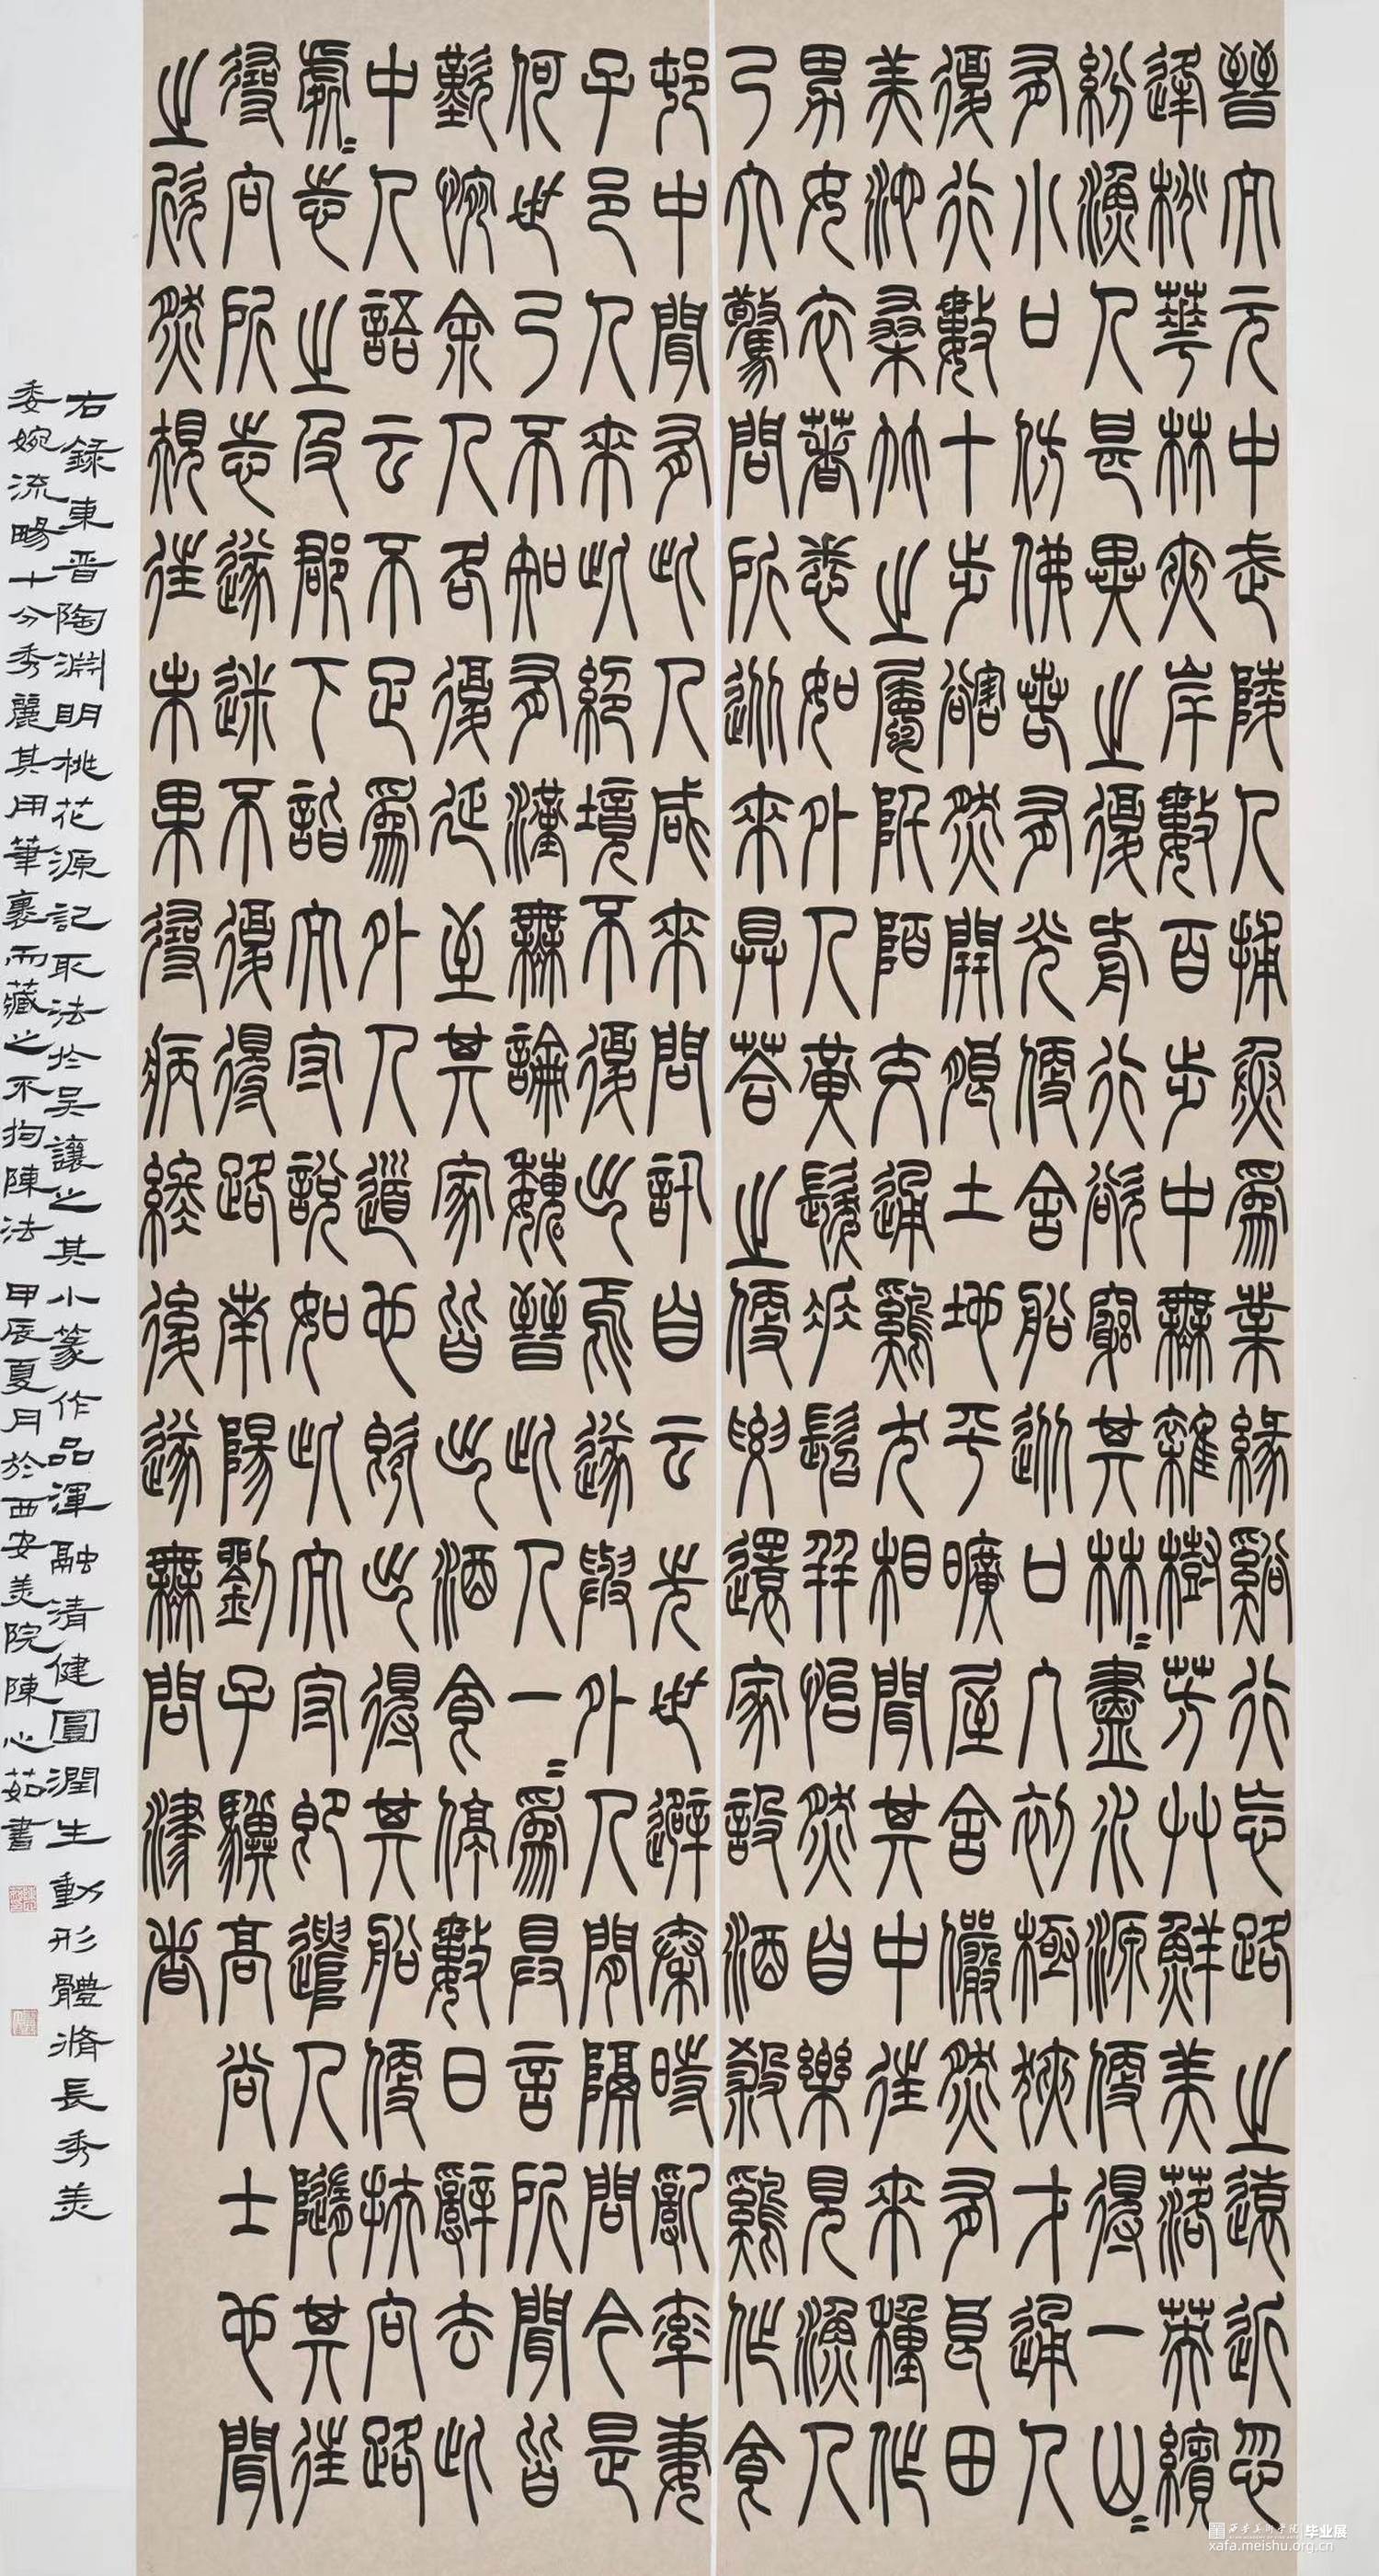 晉太元中武陵人捕魚為業緣谿行忘路之遠近忽
逢桃華林夾岸數百步中無雜樹芳艸鮮美落英繽
紛漁人甚異之復前行欲窮其林=盡水源便得一山=
有小口仿佛若有光便舍船從口入初極狹才通人
復行數十步豁然開朗土地平曠屋舍儼然有良田
美池桑竹之屬阡陌交通鷄犬相聞其中往來種作
男女衣著悉如外人黃髮垂髫并怡然自樂見漁人
乃大驚問所從來具答之便要還家設酒殺鷄作食
邨中聞有此人咸來問訊自云先世避秦時亂率妻
子邑人來此絕境不復出焉遂與外人間隔問今是
何世乃不知有漢無論魏晉此人一=為具言所聞皆
歎惋余人各復延至其家皆出酒食停數日辭去此
中人語云不足為外人道也既出得其船便扶向路
處=志之及郡下詣太守說如此太守即遣人隨其往
尋向所志遂迷不復得路南陽劉子驥高尚士也聞
之欣然規往未果尋病終後遂無問津者
右錄東晉陶淵明桃花源記取法於吳讓之其小篆作品渾融清健圓潤生動形體脩長秀美
委婉流暢十分秀麗其用筆裹而藏之不拘陳法 甲辰夏月於西安美院陳心茹書
西安美术学院 毕业展
xafa.meishu.org.cn